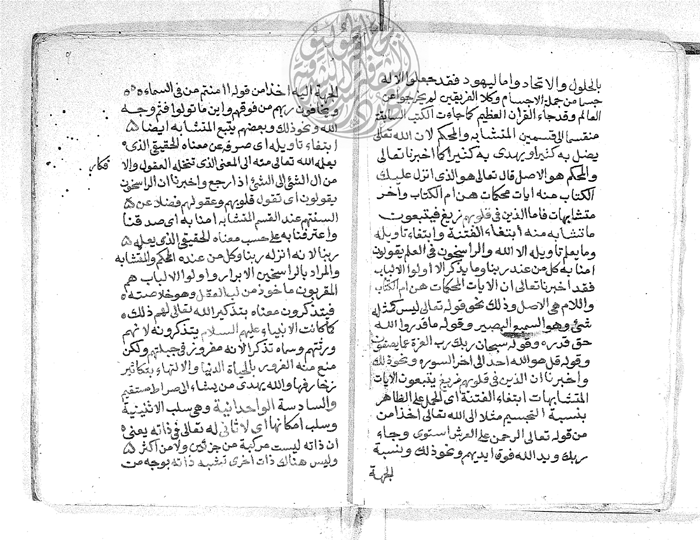 بالحلول والاتحاد واما اليهود فقد جعلوا الاله
جسما من جملة الاجسام وكلا الفريقين لم يخرجوا عن
العالم وقد جاء القران العظيم كما جاءت الكتب السابقة
منقسما الى قسمين المتشابه والمحكم لان الله تعالى
يضل به كثيرا ويهدى به كثيرا كما اخبرنا تعالى
والمحكم هو الاصل قال تعالى هو الذى انزل عليك
الكتاب منه ايات محكمات هن ام الكتاب واخر
متشابهات فاما الذين فى قلوبهم زيغ فيتبعون
ما تشابه منه ابتغاء الفتنة وابتغاء تاويله
وما يعلم تاويله الا الله والراسخون فى العلم يقولون
امنا به كل من عند ربنا وما يذكر الا اولوا الالباب
فقد اخبرنا تعالى ان الايات المحكمات هن ام الكتاب
واللام هى الاصل وذلك نحو قوله تعالى ليس كمثله
شئ وهو السميع البصير وقوله ما قدروا الله
حق قدره وقوله سبحان ربك رب العزة عما يصفون
وقوله قل هو الله احد الى اخر السوره ونحو ذلك
واخبرنا ان الذين فى قلوبهم زيغ يتبعون الايات
المتشابهات ابتغاء الفتنة اى الحمل على الظاهر
بنسبة التجسيم مثلا الى الله تعالى اخذا من
من قوله تعالى الرحمن على العرش استوى وجاء
ربك ويد الله فوق ايديهم ونحو ذلك ونسبة
الجهة
الجهة اليه اخذا من قوله اامنتم من فى السماء
ويخافون ربهم من فوقهم واين ما تولوا فثم وجه
الله ونحو ذلك وبعضهم يتبع المتشابه ايضا
ابتغاء تاويله اى صرفه عن معناه الحقيقى الذى
يعلمه الله تعالى منه الى المعنى الذى تتخيله العقول والا
من ال الشئ الى الشئ اذا رجع واخبرنا ان الراسخون
يقولون اى تقول قلوبهم وعقولهم فضلا عن
السنتهم عند القسم المتشابه امنا به اى صدقنا
واعترفنا به على حسب معناه الحقيقى الذى يعلمه
ربنا لانه انزله ربنا وكل من عنده المحكم والمتشابه
والمراد بالراسخين الابرار واولوا الالباب هم
المقربون ماخوذ من لب العقل وهو خلاصته
فيتذكرون معناه بتذكير الله تعالى لهم ذلك
كما كانت الانبياء عليهم السلام يتذكرونه لانهم
ورثتهم وسماه تذكرا لانه مغروز فى جبلتهم ولكن
منع منه الغرور بالحياة الدنيا والالتهاء بتكاثير
زخارفها والله يهدى من يشاء الى صراط مستقيم
والسادسة الواحدانية وهى سلب الاثنينية
وسلب امكانها اى لا ثانى له تعالى فى ذاته يعنى
ان ذاته ليست مركبة من جزئين ولا من اكثر
وليس هناك ذات اخرى تشبه ذاته بوجه من